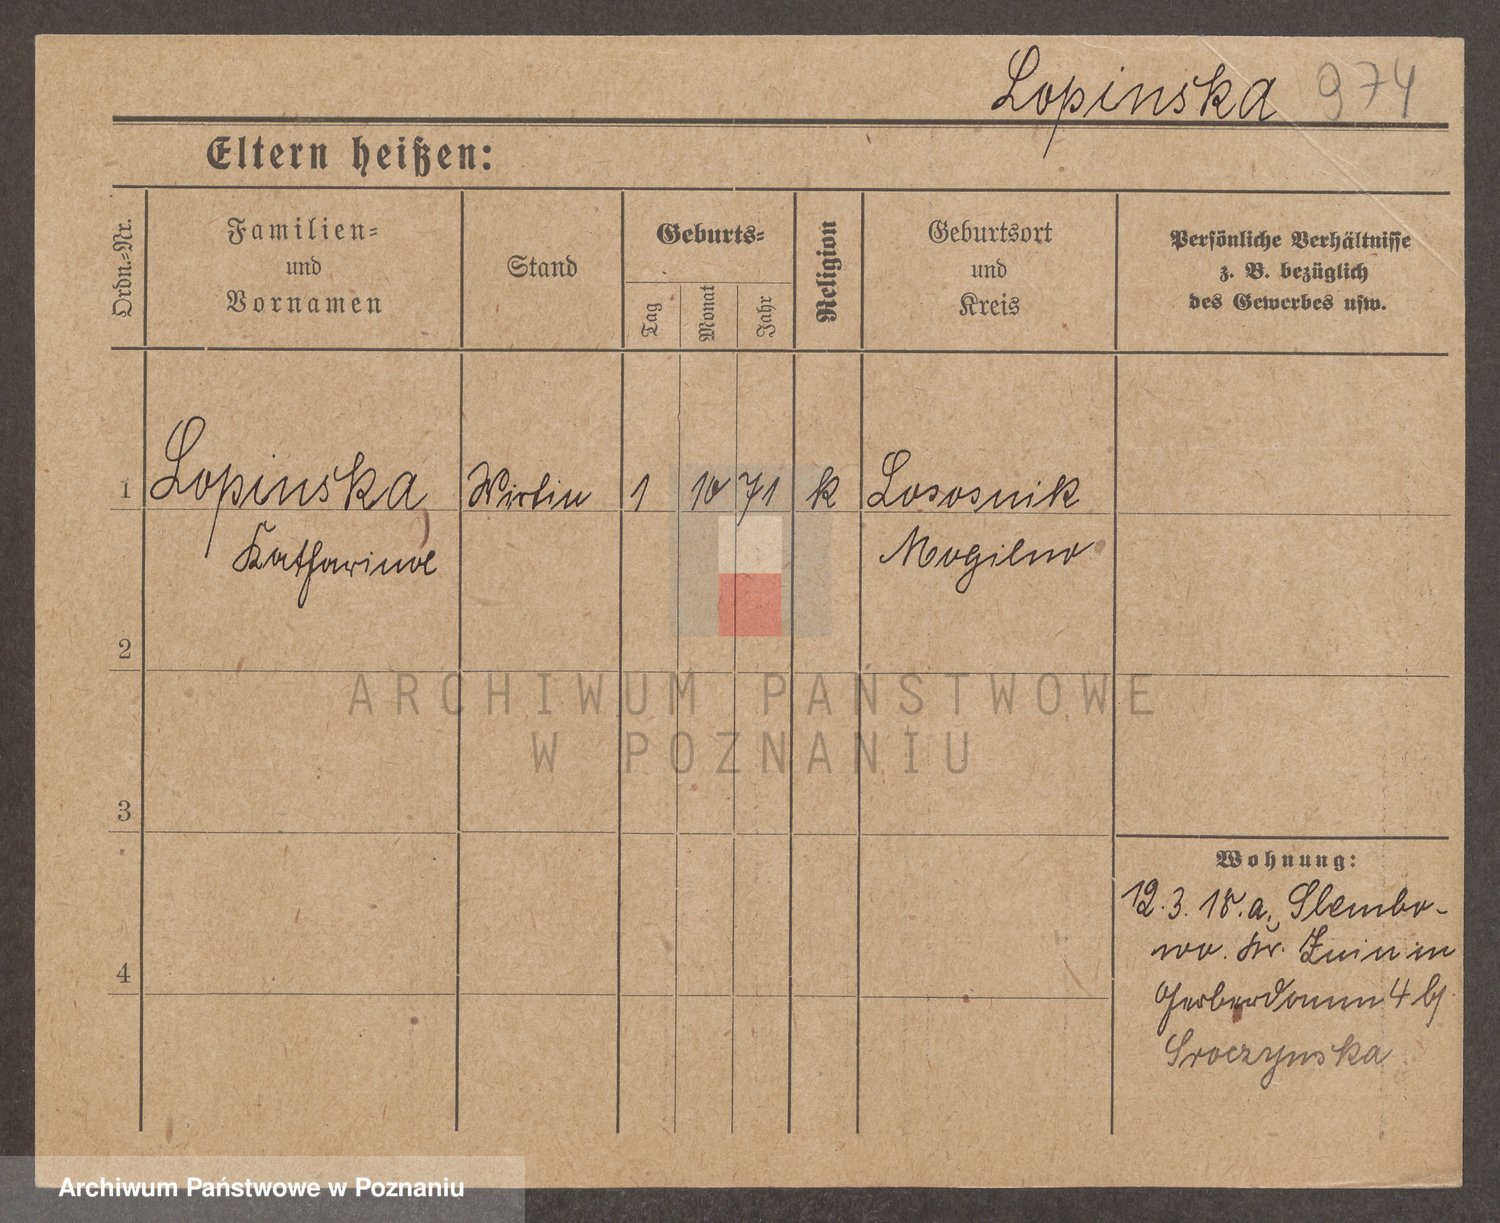 Lopinska 974
Eltern heißen:
Ordn.-Nr.
Familien-
und
Vornamen
Stand
Geburts-
Tag
Monat
Jahr
Religion
Geburtsort
und
Kreis
Persönliche Verhältnisse
z. B. bezüglich
des Gewerbes usw.
1 Lopinska Wirtin 1 10 71 k Lososnik
Katharina Mogilno
2
3
4
Wohnung:
12.3.18. a. Slembo-
wo. Kr. Znin in
Gerberdamm 4 b/
Sroczynska
ARCHIWUM PAŃSTWOWE
W POZNANIU
Archiwum Państwowe w Poznaniu